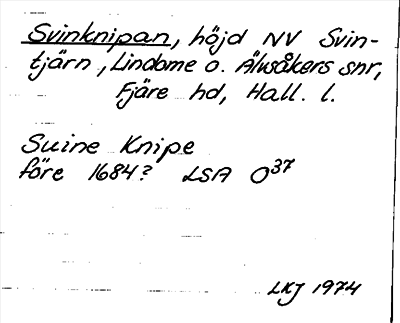 Svinknipan, höjd NV Svin-
tjärn, Lindome o. Älvsåkers snr,
Fjäre hd, Hall. l.
Suine Knipe
före 1684? LSA O37
LKJ 1974